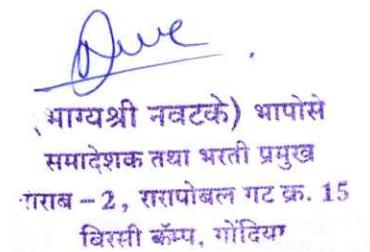 भाग्यश्री नवटके) भापोसे
समादेशक तथा भरती प्रमुख
ाराब – 2, रारापोबल गट क्र. 15
बिरसी कॅम्प, गोंदिया